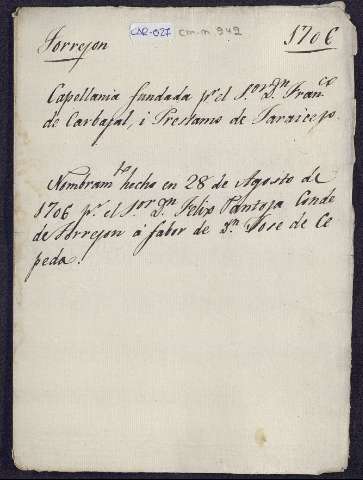 CAR-027 cm-n 942
Torrejon 1706
Capellania fundada pr. el Sor. Dn. Franco.
de Carbajal, i Prestamo de Jaraicejo.
Nombramto. hecho en 28 de Agosto de
1706 pr. el Sor. Dn. Felix Pantoja Conde
de Torrejon á fabor de Dn. Jose de Ce
peda.